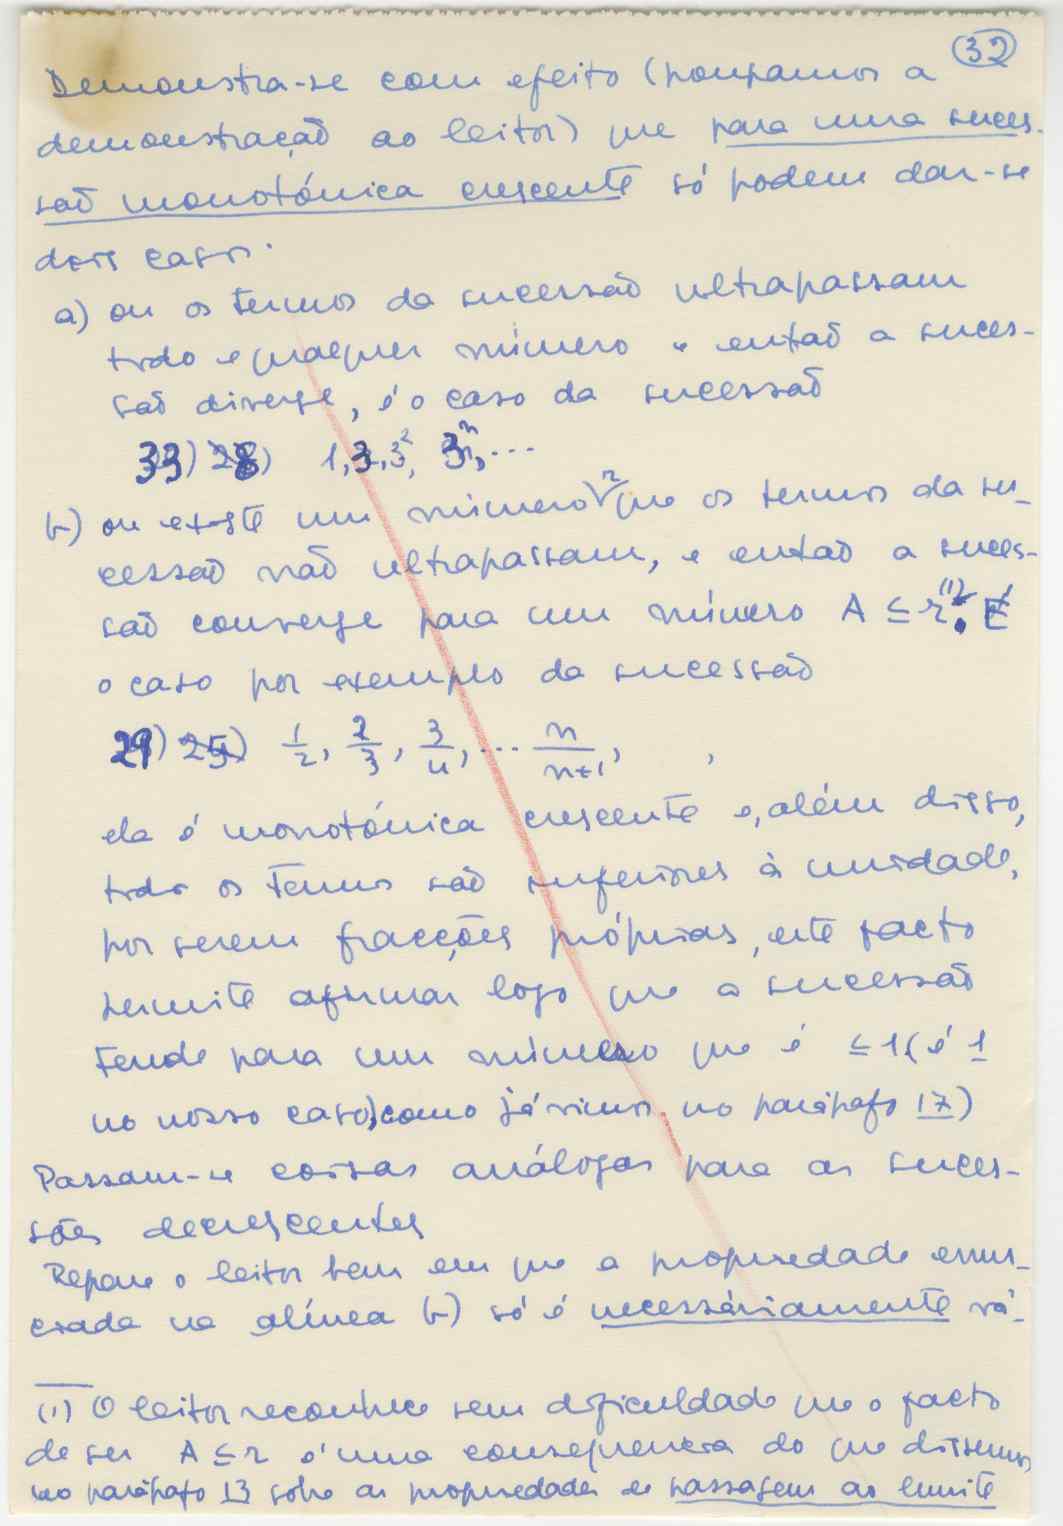 32
Demonstra-se com efeito (poupamos a
demonstração ao leitor) que para uma suces-
são monotónica crescente só podem dar-se
dois casos.
a) ou os termos da sucessão ultrapassam
todo e qualquer número e então a suces-
são diverge, é o caso da sucessão
33) 28) 1, 3, 3², 3ⁿ, ...
b) ou existe um número r que os termos da su-
cessão não ultrapassam, e então a suces-
são converge para um número A ≤ r⁽¹⁾. É
o caso por exemplo da sucessão
29) 25) 1/2, 2/3, 3/4, ... n/n+1, ,
ela é monotónica crescente e, além disso,
todos os termos são inferiores à unidade,
por serem fracções próprias, este facto
permite afirmar logo que a sucessão
tende para um número que é ≤ 1 (é 1
no nosso caso, como já vimos no parágrafo 17)
Passam-se coisas análogas para as suces-
sões decrescentes
Repare o leitor bem em que a propriedade enun-
ciada na alínea b) só é necessáriamente vá-
(1) O leitor reconhece sem dificuldade que o facto
de ser A ≤ r é uma consequencia do que dissemos
no parágrafo 13 sobre as propriedades de passagem ao limite